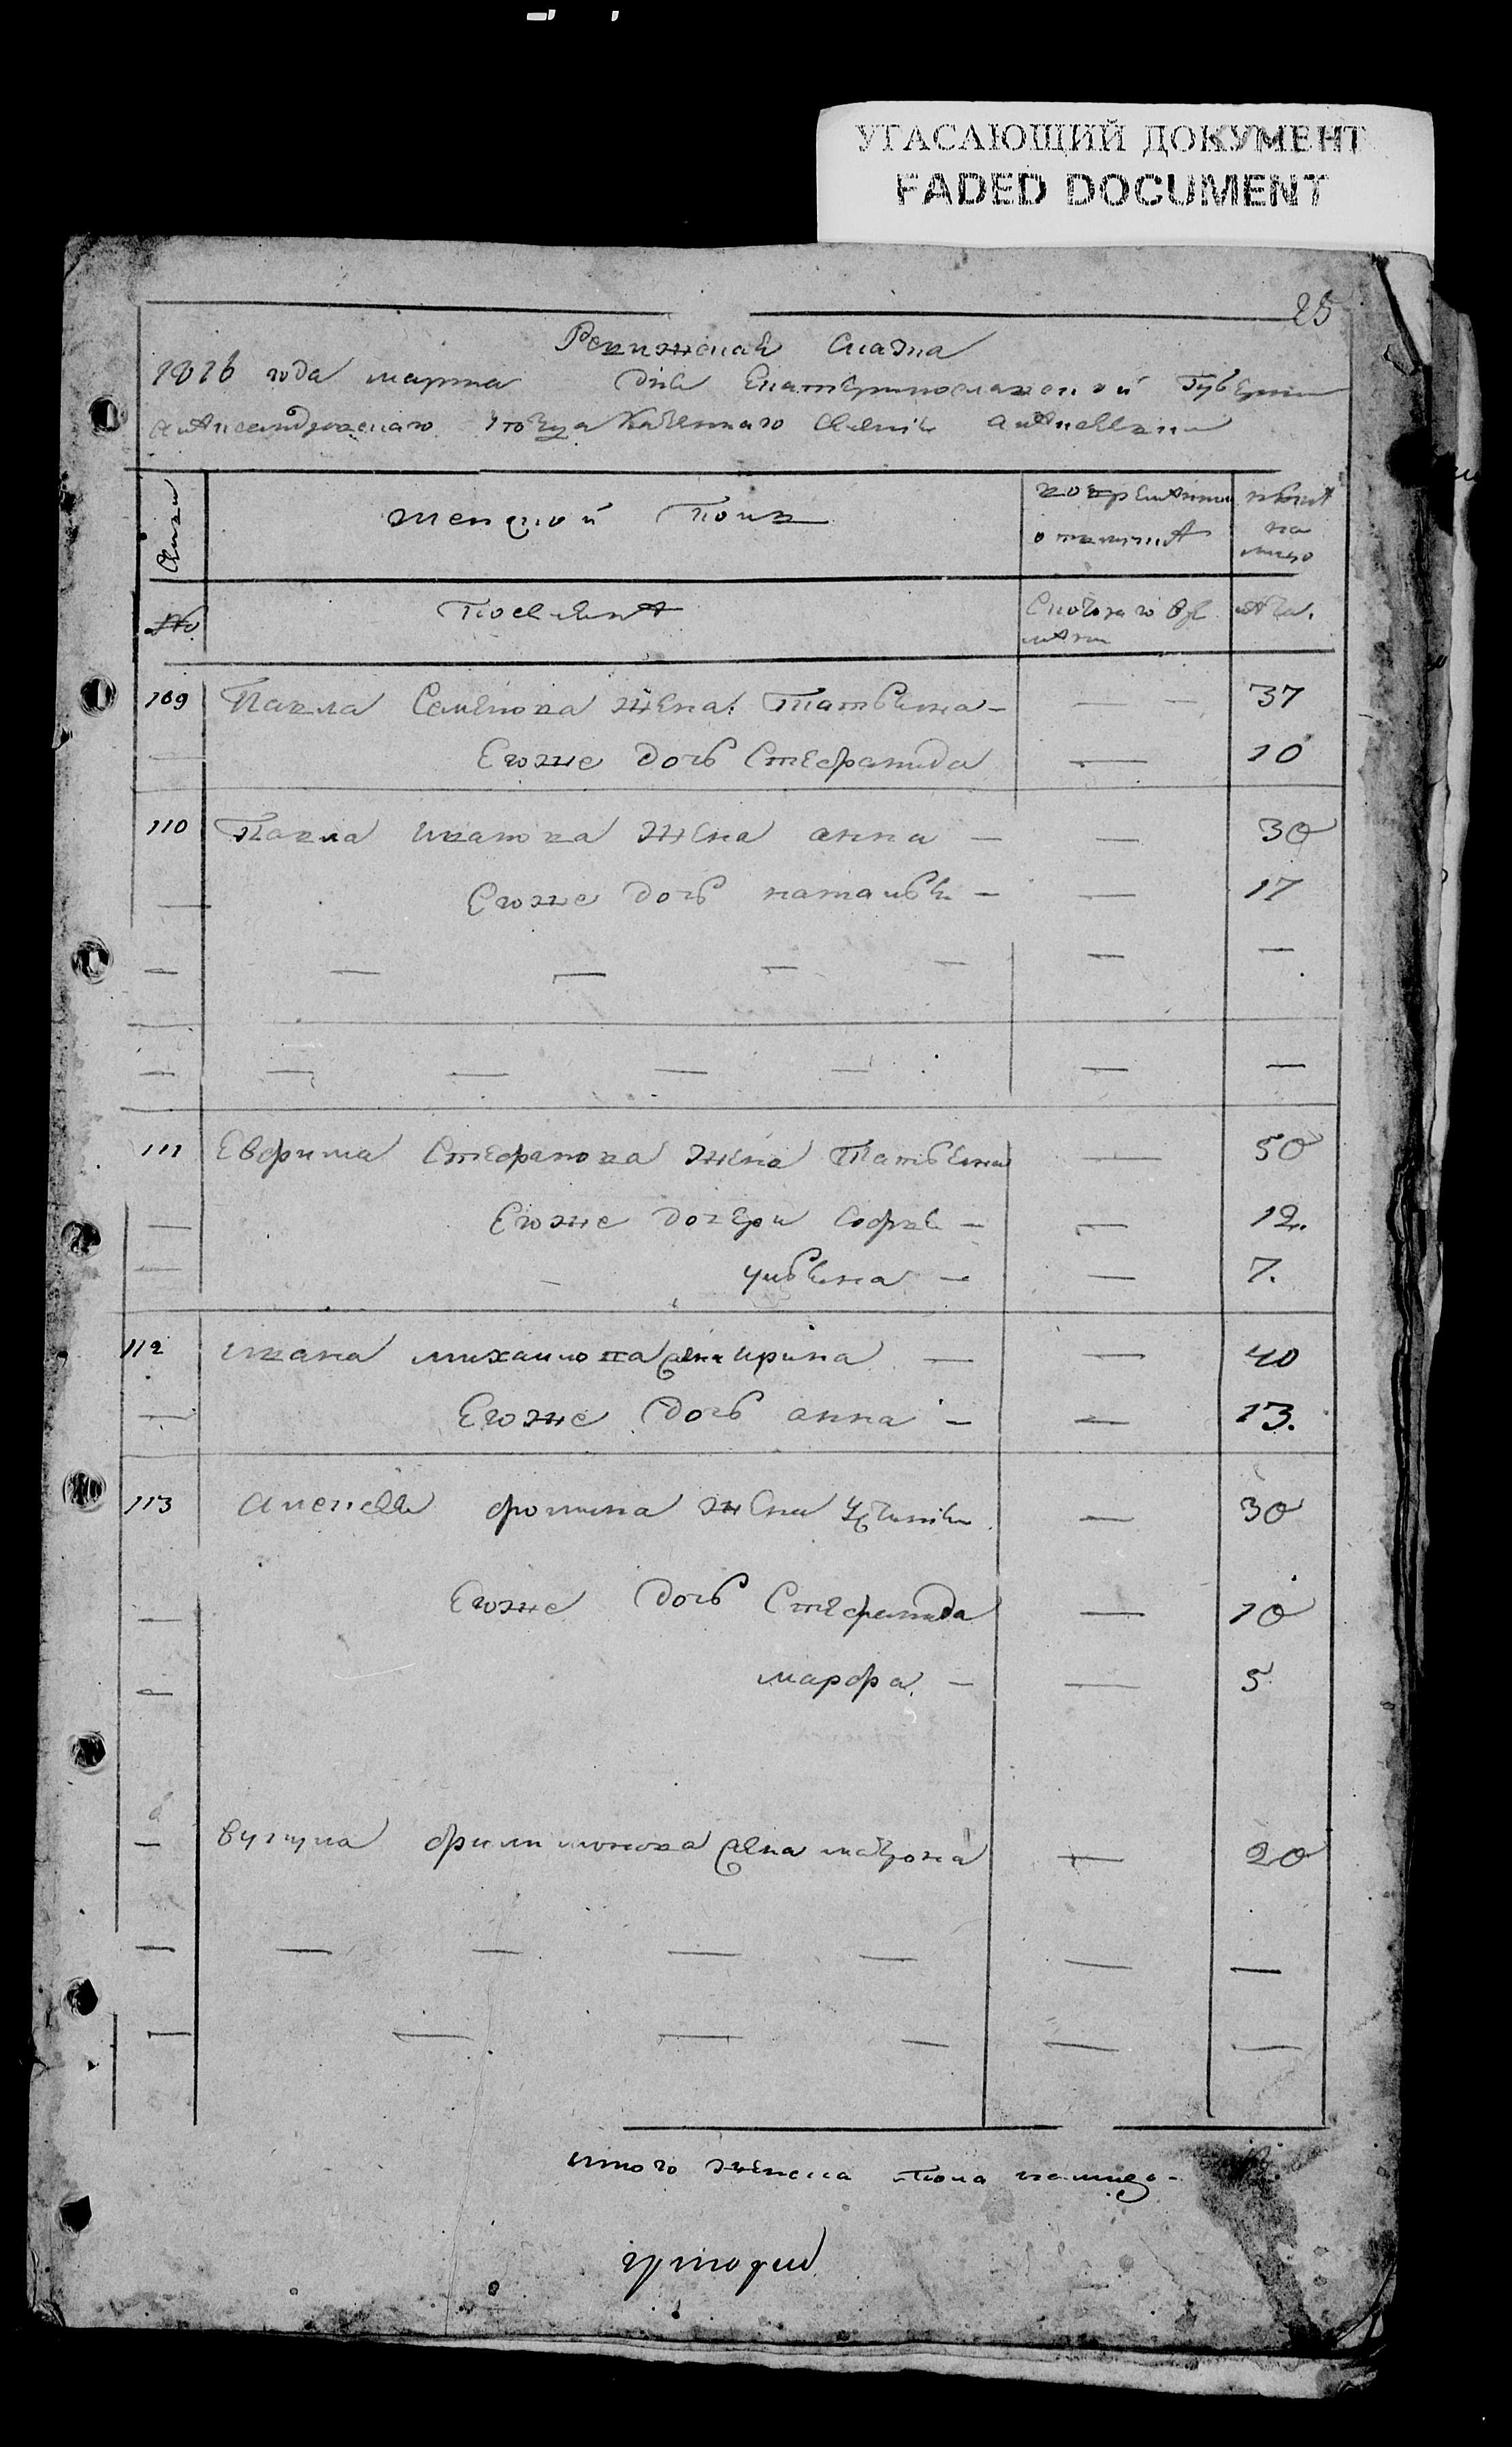 УГАСАЮЩИЙ ДОКУМЕНТ
FADED DOCUMENT
25
Ревижская Сказка
1816 года марта дня Екатеринославской Губернии
Александровскаго уезда Казеннаго Селения
женской Полъ
во временной отлучке
ныне на лицо
№
Поселяне
С котораго времяни
лета.
109 Павла Семенова жена Татьяна — — — 37
— Егоже дочь Стефанида — 10
110 Павла Иванова жена анна — — 30
— Егоже дочь наталья — — 17
— — — — — — —
— — — — — — —
111 Евфима Стефанова жена Татьяна — 50
— Егоже дочери Софья — — 12.
— ульяна — — 7.
112 ивана михаилова жена ирина — — 40
— Егоже дочь анна — — 13.
113 алексея фомина жена — 30
— Егоже дочь Стефанида — 10
— марфа. — — 5
— филимонова жена матрона — 20
— — — — — — —
— — — — — —
итого женска пола налицо -